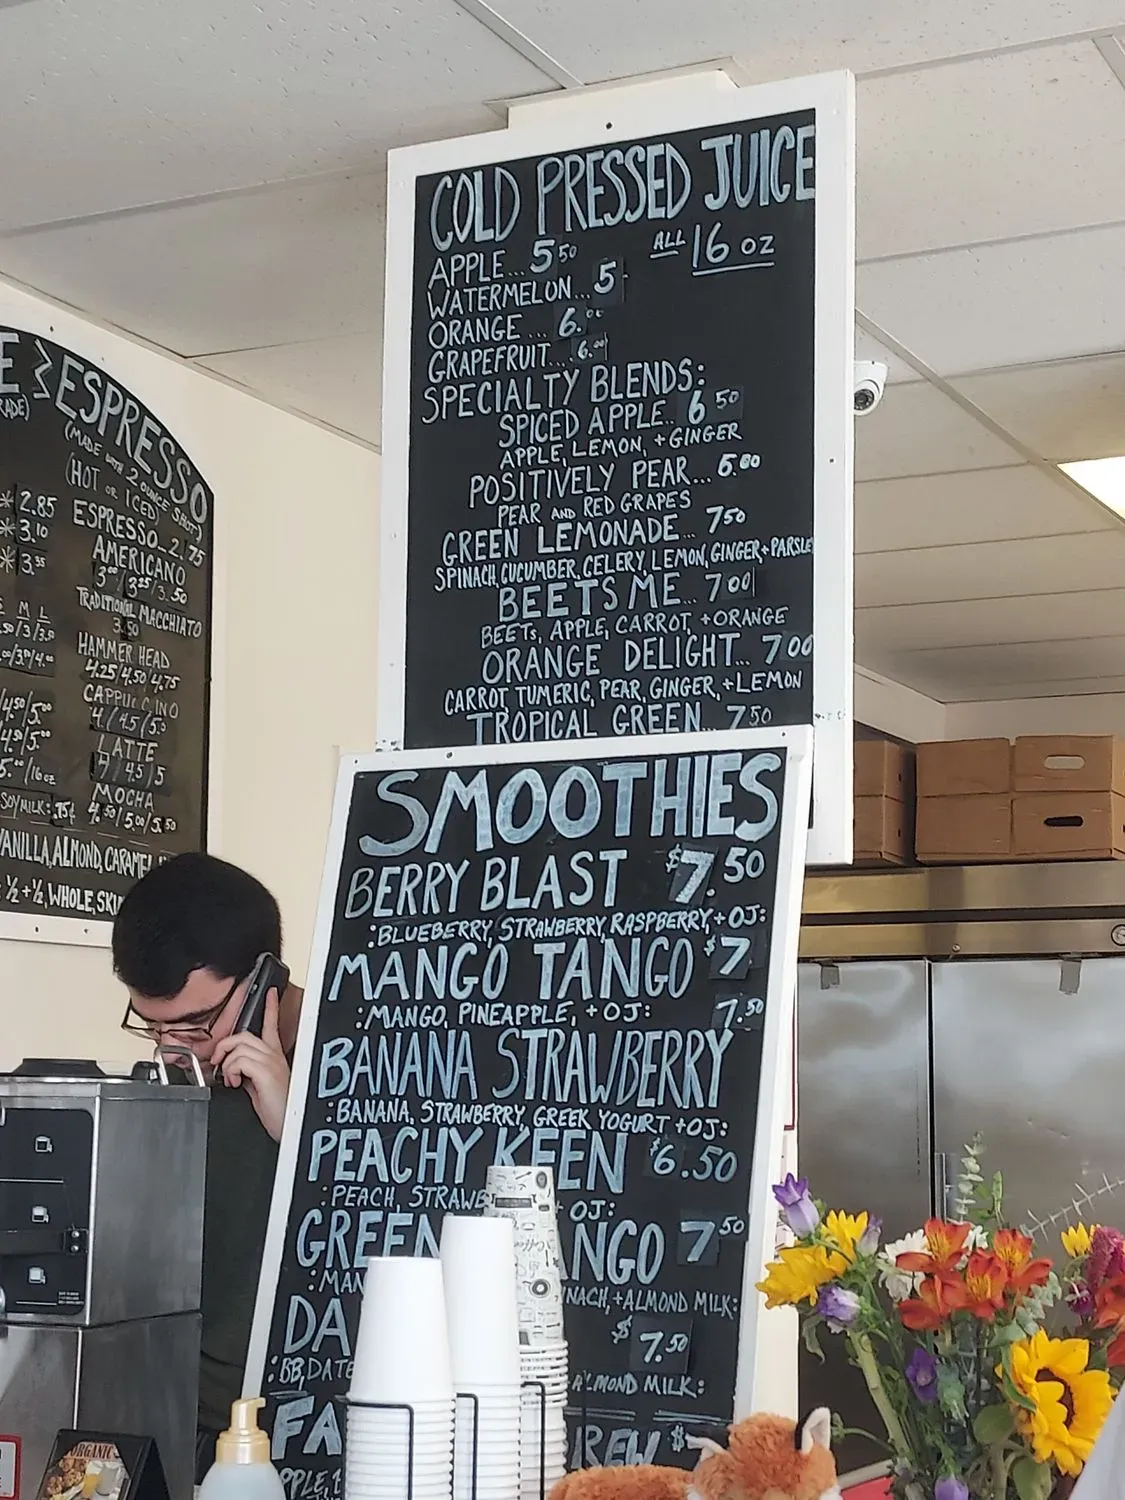 ESPRESSO
(MADE WITH 2 OUNCE SHOT)
(HOT OR ICED)
2.85
3.10
ESPRESSO 2.75
AMERICANO
3.25/3.50
TRADITIONAL MACCHIATO
3.50
HAMMER HEAD
4.25/4.50/4.75
CAPPUCCINO
LATTE
MOCHA
4.50/5.00/5.50
SOYMILK: .75¢
VANILLA, ALMOND, CARAMEL
½ + ½, WHOLE, SKI
COLD PRESSED JUICE
ALL 16 OZ
APPLE... 5 50
WATERMELON... 5
ORANGE ... 6.00
GRAPEFRUIT... 6.00
SPECIALTY BLENDS:
SPICED APPLE.. 6 50
APPLE, LEMON, + GINGER
POSITIVELY PEAR... 6.00
PEAR AND RED GRAPES
GREEN LEMONADE... 7 50
SPINACH, CUCUMBER, CELERY, LEMON, GINGER + PARSLE
BEETS ME... 7 00
BEETS, APPLE, CARROT, + ORANGE
ORANGE DELIGHT... 7 00
CARROT, TUMERIC, PEAR, GINGER, + LEMON
TROPICAL GREEN... 7 50
SMOOTHIES
BERRY BLAST $7.50
: BLUEBERRY, STRAWBERRY, RASPBERRY, + OJ:
MANGO TANGO $7
: MANGO, PINEAPPLE, + OJ:
7.50
BANANA STRAWBERRY
: BANANA, STRAWBERRY, GREEK YOGURT + OJ:
PEACHY KEEN $6.50
: PEACH, STRAWB OJ:
GREEN NGO 7 50
: MAN NACH, + ALMOND MILK:
DA $7.50
: BB, DATE ALMOND MILK:
FA REW $
PPLE,
ORGANIC